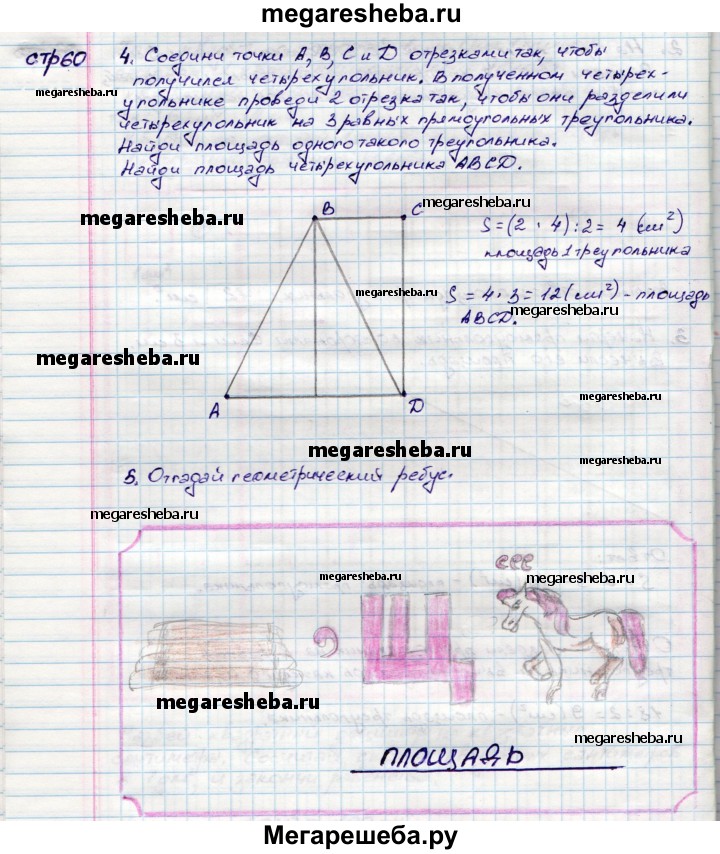 megaresheba.ru
стр60
4. Соедини точки A, B, C и D отрезками так, чтобы
получился четырехугольник. В полученном четырех-
угольнике проведи 2 отрезка так, чтобы они разделили
четырехугольник на 3 равных прямоугольных треугольника.
Найди площадь одного такого треугольника.
Найди площадь четырехугольника ABCD.
megaresheba.ru
megaresheba.ru
megaresheba.ru
B
C
S = (2 · 4) : 2 = 4 (см²)
площадь 1 треугольника
megaresheba.ru
S = 4 · 3 = 12 (см²) - площадь
ABCD.
megaresheba.ru
megaresheba.ru
A
D
megaresheba.ru
5. Отгадай геометрический ребус.
megaresheba.ru
ееe
megaresheba.ru
megaresheba.ru
megaresheba.ru
, Щ
megaresheba.ru
megaresheba.ru
ПЛОЩАДЬ
megaresheba.ru
Мегарешеба.ру